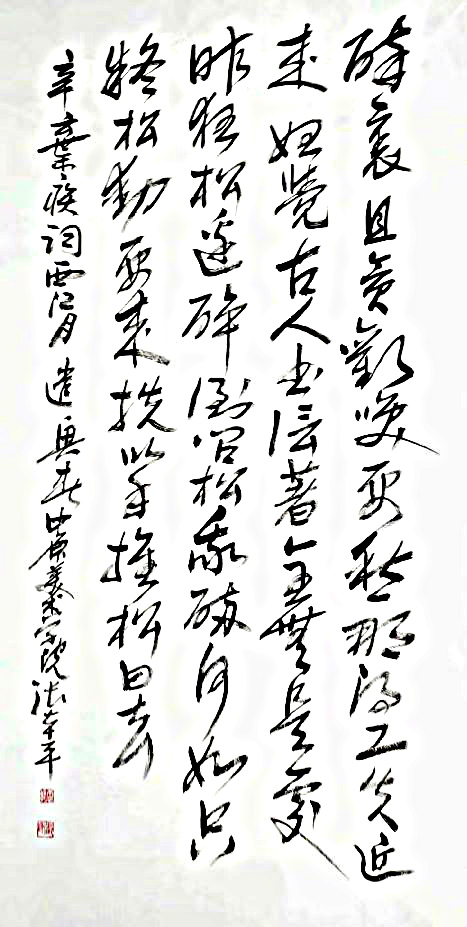 醉裏且貪歡笑要愁那得工夫近
来始覺古人书信著全無是處
昨夜松邊醉倒問松我醉何如只
疑松動要来扶以手推松曰去
辛棄疾词西江月遣興中原美术学院张平